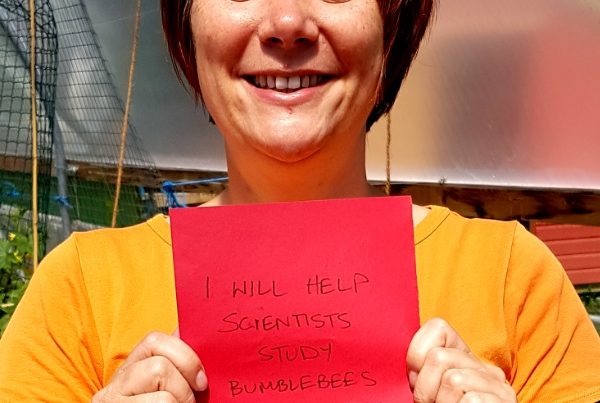 I WILL HELP
SCIENTISTS
STUDY
BUMBLEBEES